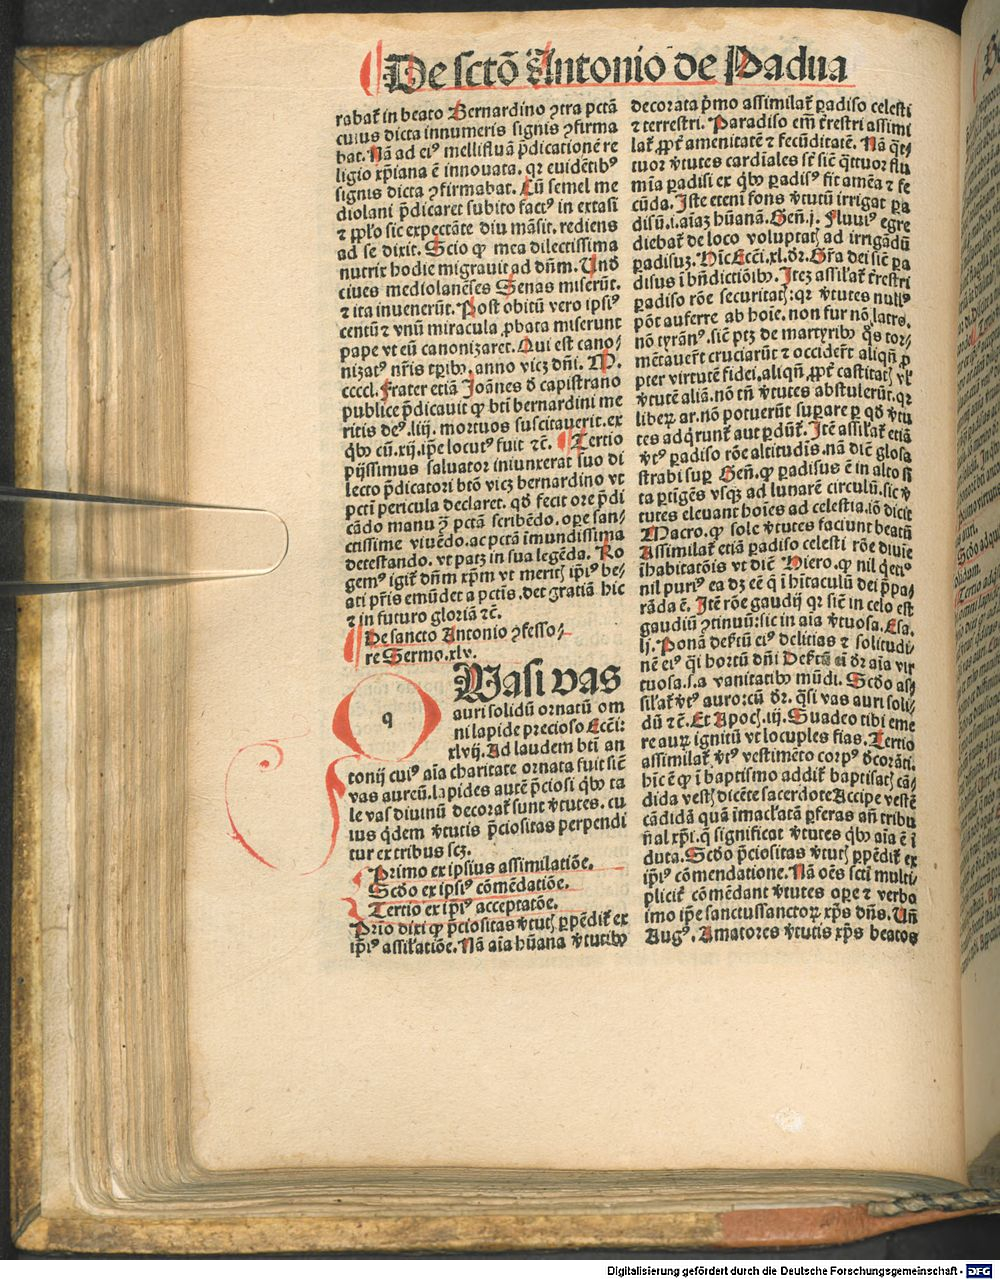 De sctō Antonio de Padua
rabaƭ in beato Bernardino ↄtra pctā
cuius dicta innumeris signis ↄfirma
bat. Nā ad eiꝰ mellifluā p̄dicationē re
ligio xp̄iana ē innouata. qꝛ euidētibꝰ
signis dicta ↄfirmabat. Cū semel me
diolani p̄dicaret subito factꝰ in extasī
⁊ ppl̄o sic expectāte diu māsit. rediens
ad se dixit. Scio ꝙ mea dilectissima
nutrix hodie migrauit ad dn̄m. Und̄
ciues mediolanēses Senas miserūt.
⁊ ita inuenerūt. Post obitū vero ipsiꝰ
centū ⁊ vnū miracula ꝓbata miserunt
pape vt eū canonizaret. Qui est cano-
nizatꝰ nr̄is tꝑibꝫ, anno vicꝫ dn̄i. M.
ccccl. Frater etiā Joānes d̄ capistrano
publice p̄dicauit ꝙ bt̄i bernardini me
ritis deꝰ .liij. mortuos suscitauerit. ex
q̇bꝫ cū .xij. ip̄e locutꝰ fuit ⁊c̄. Tertio
pijssimus saluator iniunxerat suo di
lecto p̄dicatori bt̄o vicꝫ bernardino vt
pctī pericula declaret. qd̄ fecit ore p̄di
cādo manu ꝟ̄ pctā scribēdo. oꝑe san-
ctissime viuēdo. ac pctā imundissima
detestando. vt patꝫ in sua legēda. Ro
gemꝰ igiƭ dn̄m xp̄m vt meritꝭ ip̄iꝰ be-
ati pr̄is emūdet a pctīs. det gratiā hic
⁊ in futuro gloriā ⁊c̄.
De sancto Antonio ↄfesso-
re Sermo.xlv.
q
Uasi vas
auri solidū ornatū om
ni lapide precioso Ecci:
xlvij. Ad laudem bt̄i an
tonij cuiꝰ aīa charitate ornata fuit sic̄
vas aureū. lapides autē p̄ciosi q̇bꝫ ta
le vas diuinū decoraƭ sunt ꝟtutes. cu
ius q̇dem ꝟtutis p̄ciositas perpendi
tur ex tribus scꝫ.
Primo ex ipsius assimilatiōe.
Scd̄o ex ipsiꝰ cōmēdatiōe.
Tertio ex ip̄iꝰ acceptatōe.
Prīo dixi ꝙ p̄ciositas ꝟtutꝭ ꝑpēdiƭ ex
ip̄iꝰ assil̄atiōe. Nā aīa hūana ꝟtutibꝫ
decorata p̄mo assimilaƭ ꝑadiso celesti
⁊ terrestri. Paradiso em̄ t̄restri assimi
laƭ ꝓpƭ amenitatē ⁊ fecūditatē. Nā q̄t-
tuor ꝟtutes cardīales st̄ sic̄ q̄ttuor flu
mīa ꝑadisi ex q̇bꝫ ꝑadisꝰ fit amēa ⁊ fe
cūda. Iste eteni fons ꝟtutū irrigat ꝑa
disū.i.aīaꝫ hūanā. Gen̄.j. Fluuiꝰ egre
diebaƭ de loco voluptatꝭ ad irrigādū
ꝑadisuꝫ. Hīc Ecci.xl.dr̄. Gr̄a dei sic̄ ꝑa
disus ī bn̄dictiōibꝫ. Iteꝫ assil̄aƭ t̄restri
ꝑadiso rōe securitatꝭ: qꝛ ꝟtutes nullꝰ
pōt auferre ab hoīe. non fur nō latro.
nō tyrānꝰ. sic̄ ptꝫ de martyribꝫ q̊s tor-
mētauer̄t cruciarūt ⁊ occider̄t aliqn̄ ꝓ
pter virtutē fidei, aliqn̄ ꝓpƭ castitatꝭ vl̓
ꝟtutē aliā. nō tn̄ ꝟtutes abstulerūt. qꝛ
liberꝝ ar. nō potuerūt suꝑare ꝑ qd̄ ꝟtu
tes adq̇runƭ aut ꝑdūƭ. Itē assil̄aƭ etiā
ꝟtꝰ ꝑadiso rōe altitudīs. nā dic̄ glosa
strabi suꝑ Gen̄. ꝙ ꝑadisus ē in alto si
ta ꝑtīgēs vsqꝫ ad lunarē circulū. sic ꝟ
tutes eleuant hoīes ad celestia. iō dicit
Macro. ꝙ sole ꝟtutes faciunt beatū
Assimilaƭ etiā ꝑadiso celesti rōe diuīe
īhabitatōis vt dic̄ Hiero. ꝙ nil q̇etiꝰ
nil puriꝰ ea dꝫ eē q̄ ī hītaculū dei p̄pa-
rāda ē. Itē rōe gaudij qꝛ sic̄ in celo est
gaudiū ↄtinuū: sic in aīa ꝟtuosa. Esa.
lj. Ponā deƭtū eiꝰ delitias ⁊ solitudi-
nē eiꝰ q̄i hortū dn̄i Deƭtū ei dr̄ aīa vir
tuosa.s.a vanitatibꝫ mūdi. Scd̄o as-
sil̄aƭ ꝟtꝰ auro: cū dr̄. q̄si vas auri soli-
dū ⁊c̄. Et Apocꝭ.iij. Suadeo tibi eme
re auꝝ ignitū vt locuples fias. Tertio
assimilaƭ ꝟtꝰ vestimēto corpꝰ d̄corāti.
hīc ē ꝙ ī baptismo addiƭ baptisatꝭ cā-
dida vestꝭ dicēte sacerdote Accipe vestē
cādidā quā imacl̄atā ꝑferas an̄ tribu
n̄al xp̄i. q̄ significat ꝟtutes q̇bꝫ aīa ē ī
duta. Scd̄o p̄ciositas ꝟtutꝭ ꝑpēdiƭ ex
ip̄iꝰ cōmendatione. Nā oēs sctī multi-
pliciƭ cōmēdant ꝟtutes oꝑe ⁊ verbo
imo ip̄e sanctus sanctoꝝ xp̄s dn̄s. Un̄
Augꝰ. Amatores ꝟtutis xp̄s beatos
Digitalisierung gefördert durch die Deutsche Forschungsgemeinschaft - DFG